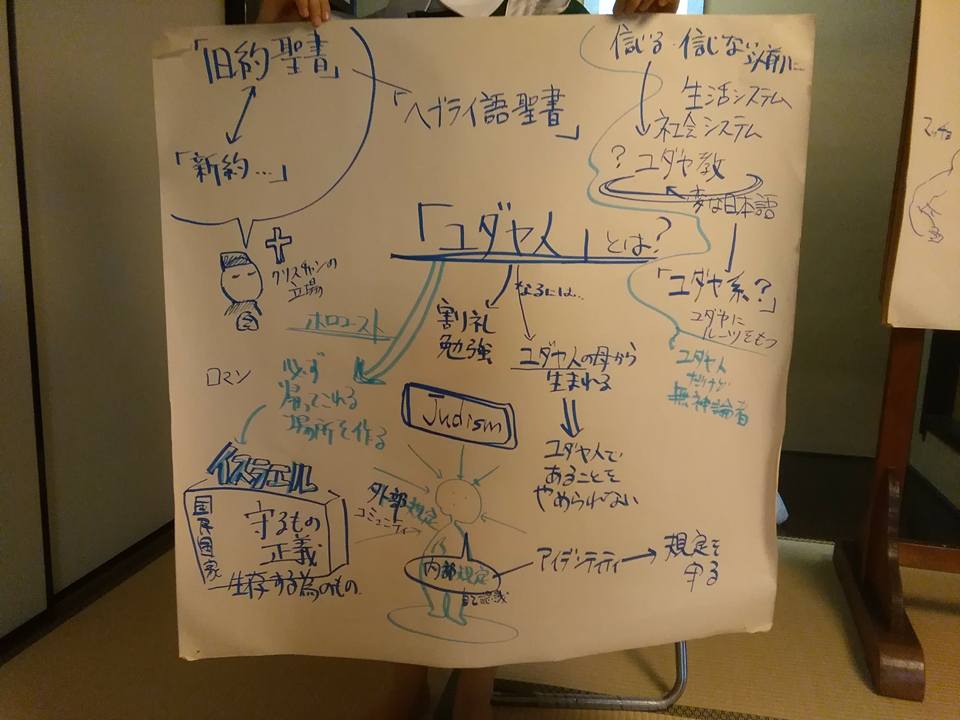 「旧約聖書」
「ヘブライ語聖書」
「新約…」
クリスチャンの
立場
信じる・信じない以前に…
生活システム
社会システム
? ユダヤ教
変な日本語
「ユダヤ系?」
ユダヤに
ルーツをもつ
ユダヤ人
だけど
無神論者
「ユダヤ人」とは?
なるには…
割り礼
勉強
ユダヤ人の母から
生まれる
ユダヤ人で
あることを
やめられない
ホロコースト
必ず
帰ってこれる
場所を作る
ロマン
イスラエル
国民国家
守るもの
正義
生存する為のもの
Judism
外部規定
コミュニティー
内部規定
自己認識
アイデンティティ
規定を
守る
マッチョ